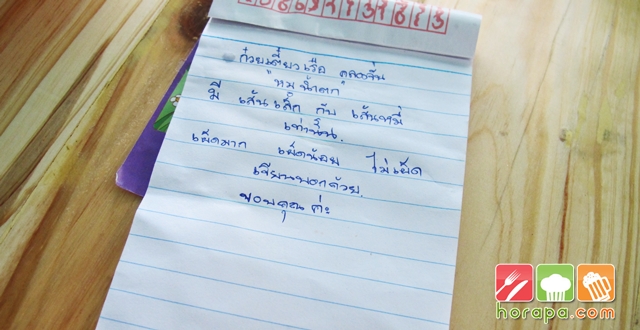 ก๋วยเตี๋ยวเรือ
"หมู น้ำตก"
มี เส้นเล็ก กับ เส้นหมี่
เท่านั้น.
เผ็ดมาก เผ็ดน้อย ไม่เผ็ด
เขียนบอกด้วย.
ขอบคุณ ค่ะ
horapa.com